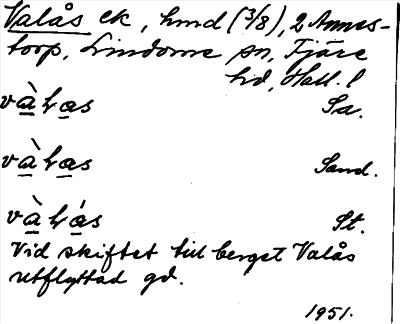 Valås ek, hmd (3/8), 2 Annes-
torp, Lindome sn, Fjäre
hd, Hall. l
vàlas Sa.
vàlas Sand.
vàlás St.
Vid skiftet till berget Valås
utflyttad gd.
1951.